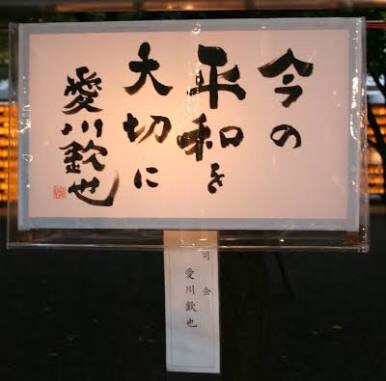 今の
平和を
大切に
愛川欽也
司会
愛川欽也